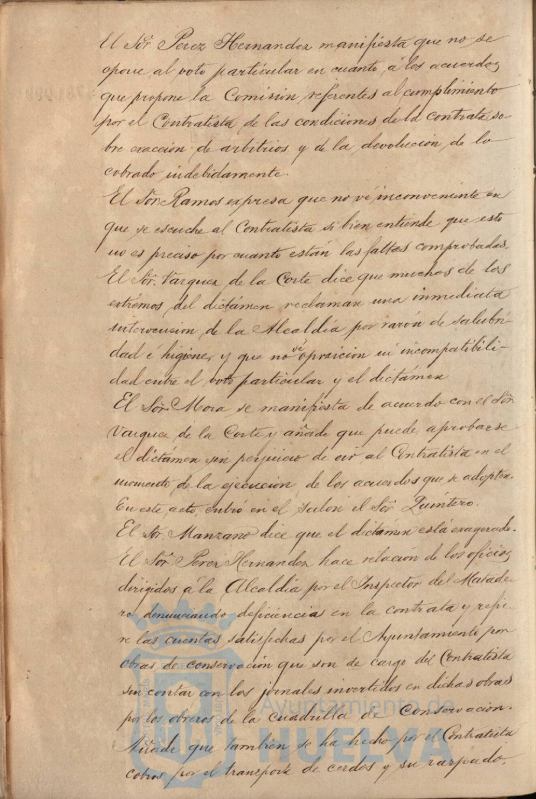 El Sör Perez Hernandez manifiesta que no se
opone al voto particular en cuanto á los acuerdos
que propone la Comision referentes al cumplimiento
por el Contratista de las condiciones de la contrata so-
bre exaccion de arbitrios y de la devolucion de lo
cobrado indebidamente.
El Sör Ramos expresa que no vé inconveniente en
que se escuche al Contratista si bien entiende que esto
no es preciso por cuanto están las faltas comprobadas.
El Sör Vazquez de la Corte dice que muchos de los
extremos del dictámen reclaman una inmediata
intervencion de la Alcaldía por razón de salubri-
dad é higiene, y que no vé oposicion ni incompatibili-
dad entre el voto particular y el dictámen
El Sör Mora se manifiesta de acuerdo con el Sör
Vazquez de la Corte y añade que puede aprobarse
el dictámen sin perjuicio de oir al Contratista en el
momento de la ejecucion de los acuerdos que se adopten.
En este acto entró en el salon el Sör Quintero.
El Sör Manzano dice que el dictámen está exagerado.
El Sör Perez Hernandez hace relación de los oficios
dirigidos á la Alcaldía por el Inspector del Matade-
ro denunciando deficiencias en la contrata y refie-
re las cuentas satisfechas por el Ayuntamiento por
obras de conservacion que son de cargo del Contratista
sin contar con los jornales invertidos en dichas obras
por los obreros de la cuadrilla de Conservacion.
Añade que tambien se ha hecho por el Contratista
cobros por el transporte de cerdos y su raspado,
Ayuntamiento de
HUELVA